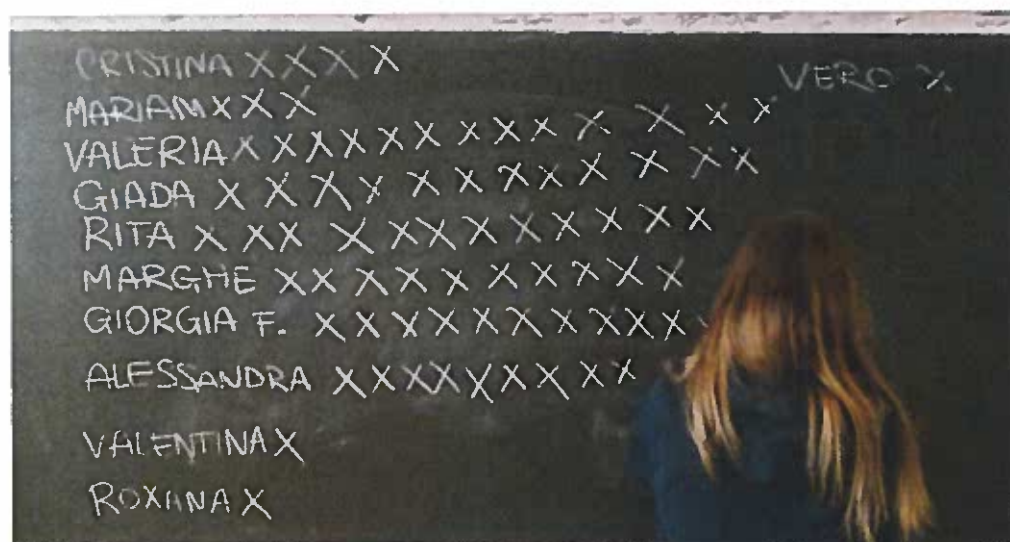 CRISTINA X X X X
VERO X
MARIAM X X X
VALERIA X X X X X X X X X X X X X
GIADA X X X X X X X X X X X X
RITA X X X X X X X X X X X
MARGHE X X X X X X X X X X
GIORGIA F. X X X X X X X X X X
ALESSANDRA X X X X X X X X X
VALENTINA X
ROXANA X